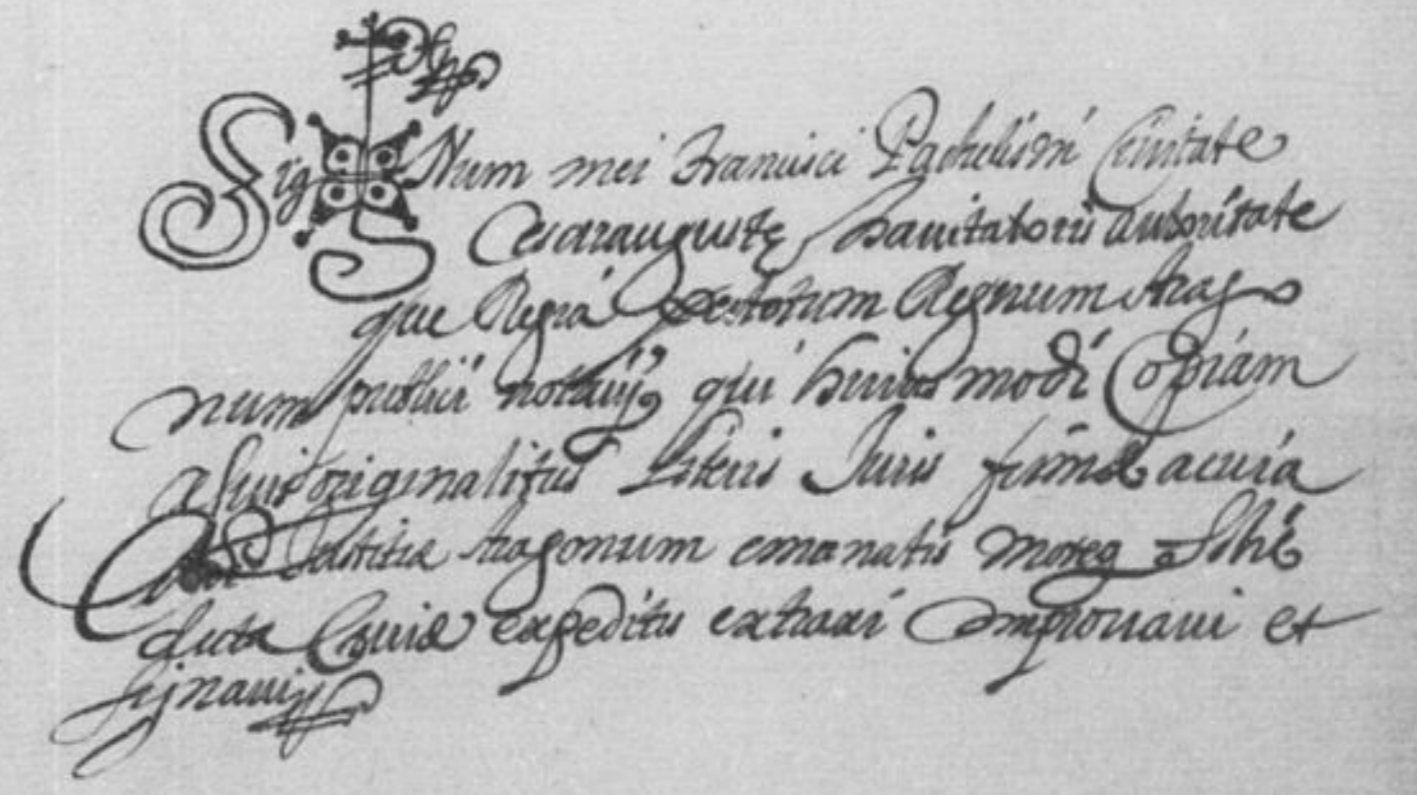 Sig Num mei Francisci Civitate
Cesarauguste, havitatoris autoritate
que Regia Regnum Arago
num publici notarij, qui huius modi Copiam
a suis originalibus Literis Juris firmæ acuria
Justitiæ Aragonum emanatis moreq
dicta Curiæ expeditis extraxi comprovavi et
signavi